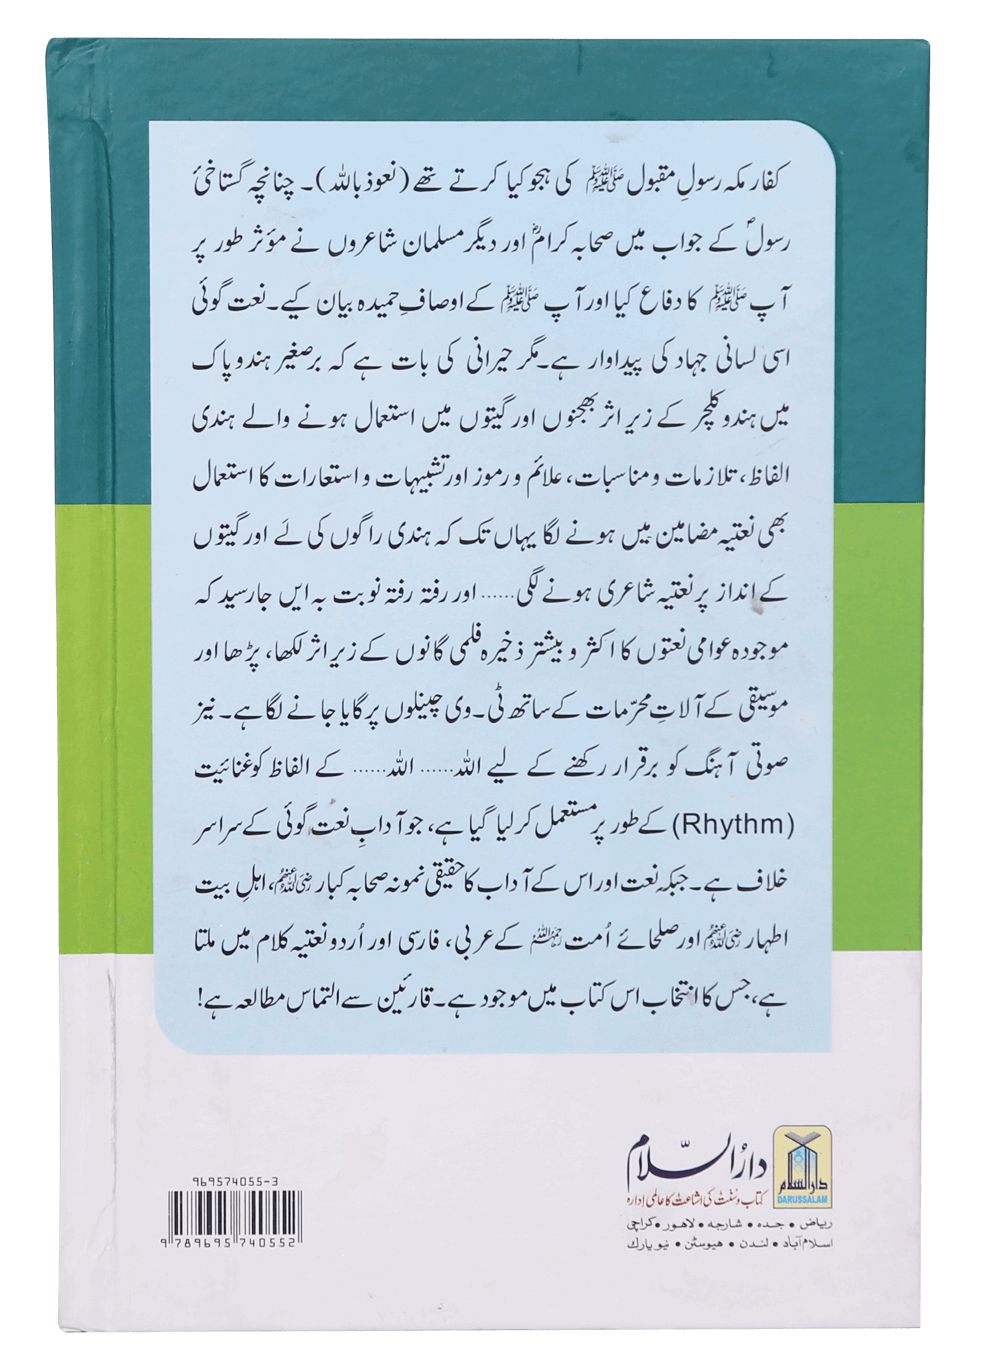 کفار مکہ رسولِ مقبول ﷺ کی ہجو کیا کرتے تھے (نعوذ باللہ)۔ چنانچہ گستاخیٔ
رسولؐ کے جواب میں صحابہ کرامؓ اور دیگر مسلمان شاعروں نے مؤثر طور پر
آپ ﷺ کا دفاع کیا اور آپ ﷺ کے اوصافِ حمیدہ بیان کیے۔ نعت گوئی
اسی لسانی جہاد کی پیداوار ہے۔ مگر حیرانی کی بات ہے کہ برصغیر ہندو پاک
میں ہندو کلچر کے زیرِ اثر بھجنوں اور گیتوں میں استعمال ہونے والے ہندی
الفاظ، تلازمات و مناسبات، علائم و رموز اور تشبیہات و استعارات کا استعمال
بھی نعتیہ مضامین میں ہونے لگا یہاں تک کہ ہندی راگوں کی لَے اور گیتوں
کے انداز پر نعتیہ شاعری ہونے لگی...... اور رفتہ رفتہ نوبت بہ ایں جا رسید کہ
موجودہ عوامی نعتوں کا اکثر و بیشتر ذخیرہ فلمی گانوں کے زیرِ اثر لکھا، پڑھا اور
موسیقی کے آلاتِ محرّمات کے ساتھ ٹی۔وی چینلوں پر گایا جانے لگا ہے۔ نیز
صوتی آہنگ کو برقرار رکھنے کے لیے اللہ...... اللہ...... کے الفاظ کو غنائیت
(Rhythm) کے طور پر مستعمل کر لیا گیا ہے، جو آدابِ نعت گوئی کے سراسر
خلاف ہے۔ جبکہ نعت اور اس کے آداب کا حقیقی نمونہ صحابہ کبار رضی اللہ عنہم، اہلِ بیت
اطہار رضی اللہ عنہم اور صلحائے اُمت رحمہم اللہ کے عربی، فارسی اور اُردو نعتیہ کلام میں ملتا
ہے، جس کا انتخاب اس کتاب میں موجود ہے۔ قارئین سے التماسِ مطالعہ ہے!
دارُالسّلام
کتاب و سُنّت کی اشاعت کا عالمی ادارہ
دارالسلام
DARUSSALAM
ریاض • جدہ • شارجہ • لاہور • کراچی
اسلام آباد • لندن • ہیوسٹن • نیو یارک
969574055-3
9 789695 740552